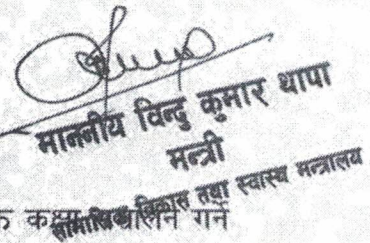 माननीय विन्दु कुमार थापा
मन्त्री
सामाजिक विकास तथा स्वास्थ्य मन्त्रालय
गर्ने